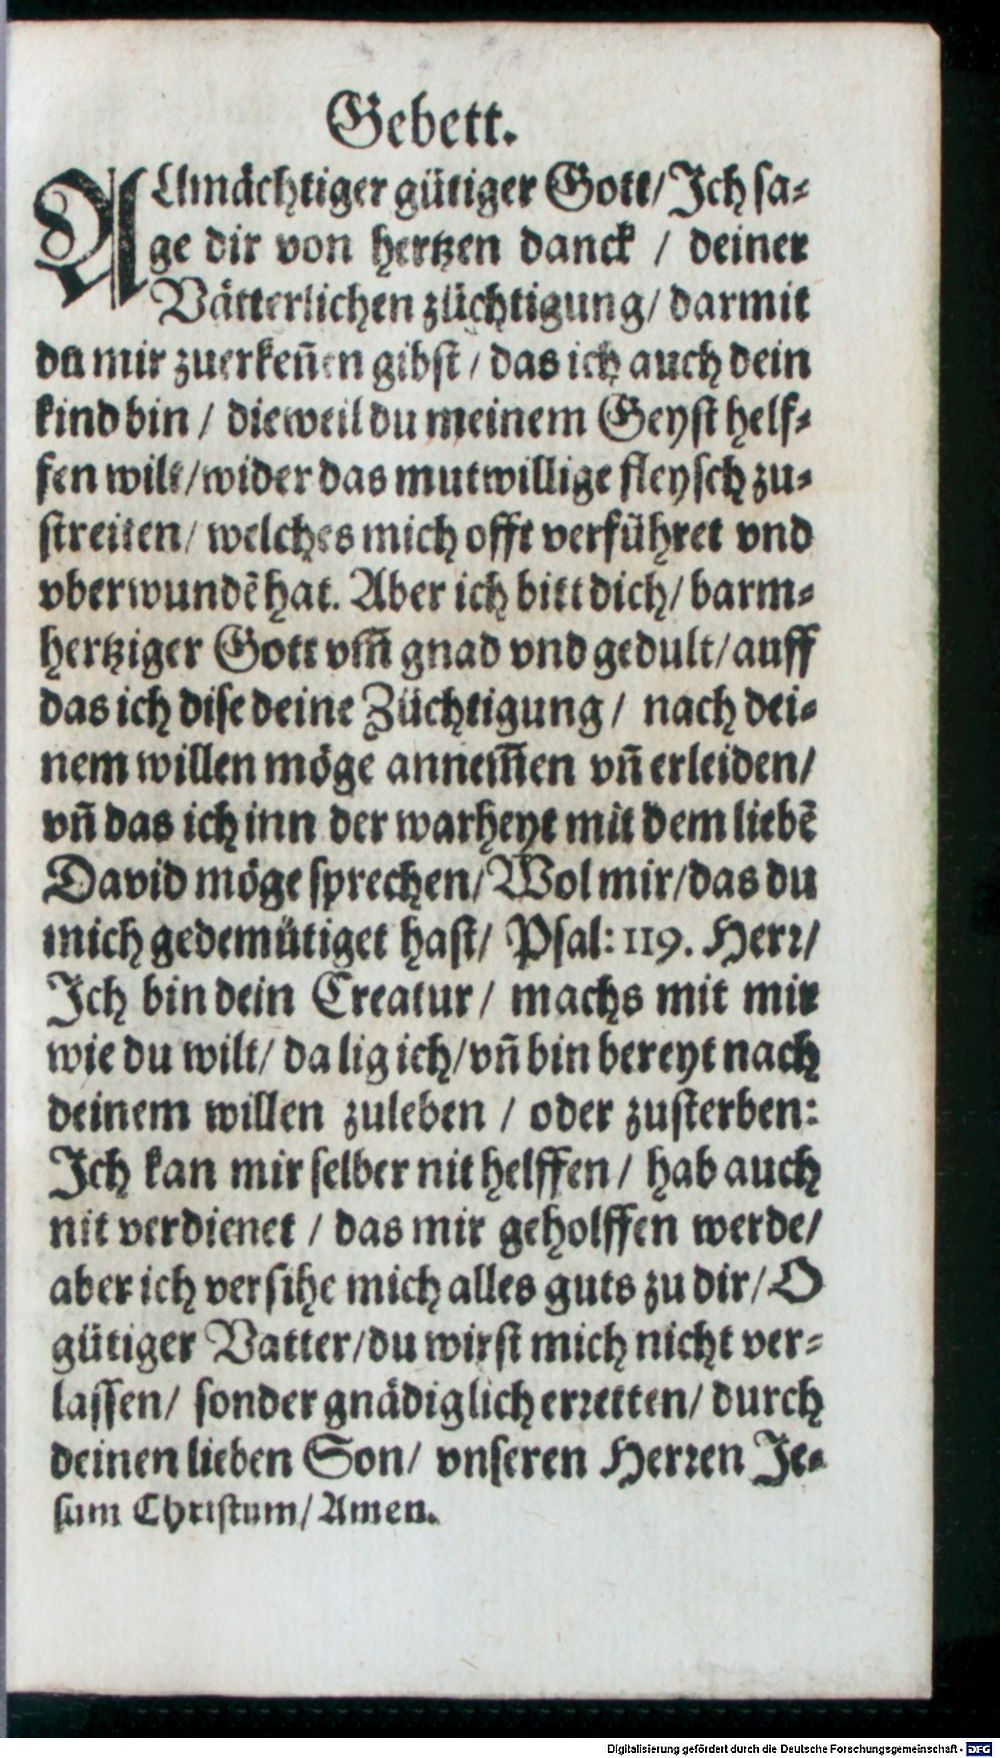 Gebett.
ALlmächtiger gütiger Gott/ Ich sa-
ge dir von hertzen danck / deiner
Vätterlichen züchtigung/ darmit
du mir zuerkeñen gibst / das ich auch dein
kind bin / dieweil du meinem Geyst helf-
fen wilt/wider das mutwillige fleysch zu-
streiten/ welches mich offt verführet vnd
vberwundẽ hat. Aber ich bitt dich/ barm-
hertziger Gott vm̃ gnad vnd gedult/auff
das ich dise deine Züchtigung / nach dei-
nem willen möge annem̃en vñ erleiden/
vñ das ich inn der warheyt mit dem liebẽ
David möge sprechen/Wol mir/das du
mich gedemütiget hast/ Psal: 119. Herr/
Ich bin dein Creatur / machs mit mir
wie du wilt/ da lig ich/vñ bin bereyt nach
deinem willen zuleben / oder zusterben:
Ich kan mir selber nit helffen / hab auch
nit verdienet / das mir geholffen werde/
aber ich versihe mich alles guts zu dir/ O
gütiger Vatter/du wirst mich nicht ver-
lassen/ sonder gnädiglich erretten/ durch
deinen lieben Son/ vnseren Herren Je-
sum Christum/ Amen.
Digitalisierung gefördert durch die Deutsche Forschungsgemeinschaft - DFG